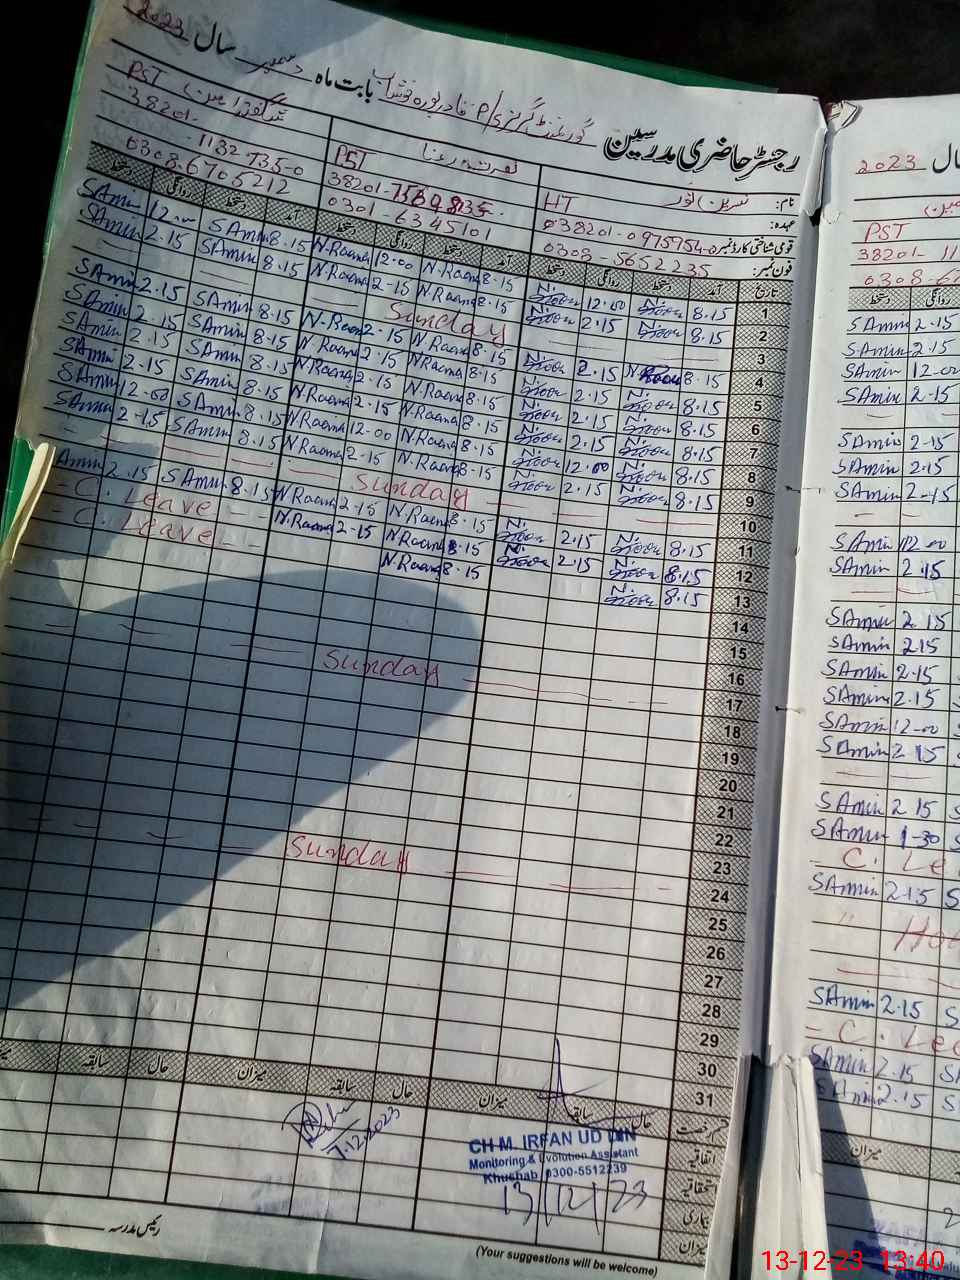 رجسٹر حاضری مدرسین گورنمنٹ گرلز P/S قادر پورہ خوشاب بابت ماہ دسمبر سال 2023
نام: نسرین نور
نصرت رعنا
شگفتہ امین
عہدہ: HT
PST
PST
قومی شناختی کارڈ نمبر: 038201-0975954-0
38201-
38201-1132735-0
فون نمبر: 0308-5652235
0301-6345101
0308-6705212
تاریخ آمد دستخط روانگی دستخط آمد دستخط روانگی دستخط آمد دستخط روانگی دستخط
1 8.15 N. Noor 12.00 N. Noor 8.15 N.Raana 12.00 N.Raana 8.15 SAmin 12.00 SAmin
2 8.15 N. Noor 2.15 N. Noor 8.15 N.Raana 2.15 N.Raana 8.15 SAmin 2.15 SAmin
3 Sunday
4 8.15 N. Noor 2.15 N. Noor 8.15 N.Raana 2.15 N.Raana 8.15 SAmin 2.15 SAmin
5 8.15 N. Noor 2.15 N. Noor 8.15 N.Raana 2.15 N.Raana 8.15 SAmin 2.15 SAmin
6 8.15 N. Noor 2.15 N. Noor 8.15 N.Raana 2.15 N.Raana 8.15 SAmin 2.15 SAmin
7 8.15 N. Noor 2.15 N. Noor 8.15 N.Raana 2.15 N.Raana 8.15 SAmin 2.15 SAmin
8 8.15 N. Noor 12.00 N. Noor 8.15 N.Raana 12.00 N.Raana 8.15 SAmin 12.00 SAmin
9 8.15 N. Noor 2.15 N. Noor 8.15 N.Raana 2.15 N.Raana 8.15 SAmin 2.15 SAmin
10 Sunday
11 8.15 N. Noor 2.15 N. Noor 8.15 N.Raana 2.15 N.Raana 8.15 SAmin 2.15 SAmin
12 8.15 N. Noor 2.15 N. Noor 8.15 N.Raana 2.15 N.Raana - C. Leave -
13 8.15 N. Noor 8.15 N.Raana - C. Leave -
14
15
16
17 Sunday
18
19
20
21
22
23
24 Sunday
25
26
27
28
29
30
31
حال سابقہ میزان حال سابقہ میزان حال سابقہ
اتفاقیہ
استحقاقیہ
بیماری
میزان
7.12.2023
CH M. IRFAN UD DIN
Monitoring & Evolution Assistant
Khushab 0300-5512239
13/12/23
رئیس مدرسہ
(Your suggestions will be welcome)
2023
PST
38201-11
0308-67
روانگی دستخط
2.15 SAmin
2.15 SAmin
12-00 SAmin
2.15 SAmin
2.15 SAmin
2.15 SAmin
2-15 SAmin
12-00 SAmin
2.15 SAmin
2.15 SAmin
2.15 SAmin
2.15 SAmin
2.15 SAmin
12-00 SAmin
2.15 SAmin
2.15 SAmin
1-30 SAmin
- C. Le
2.15 SAmin
2.15 SAmin
- C. Lea
2.15 SAmin
2.15 SAmin
میزان
13-12-23 13:40